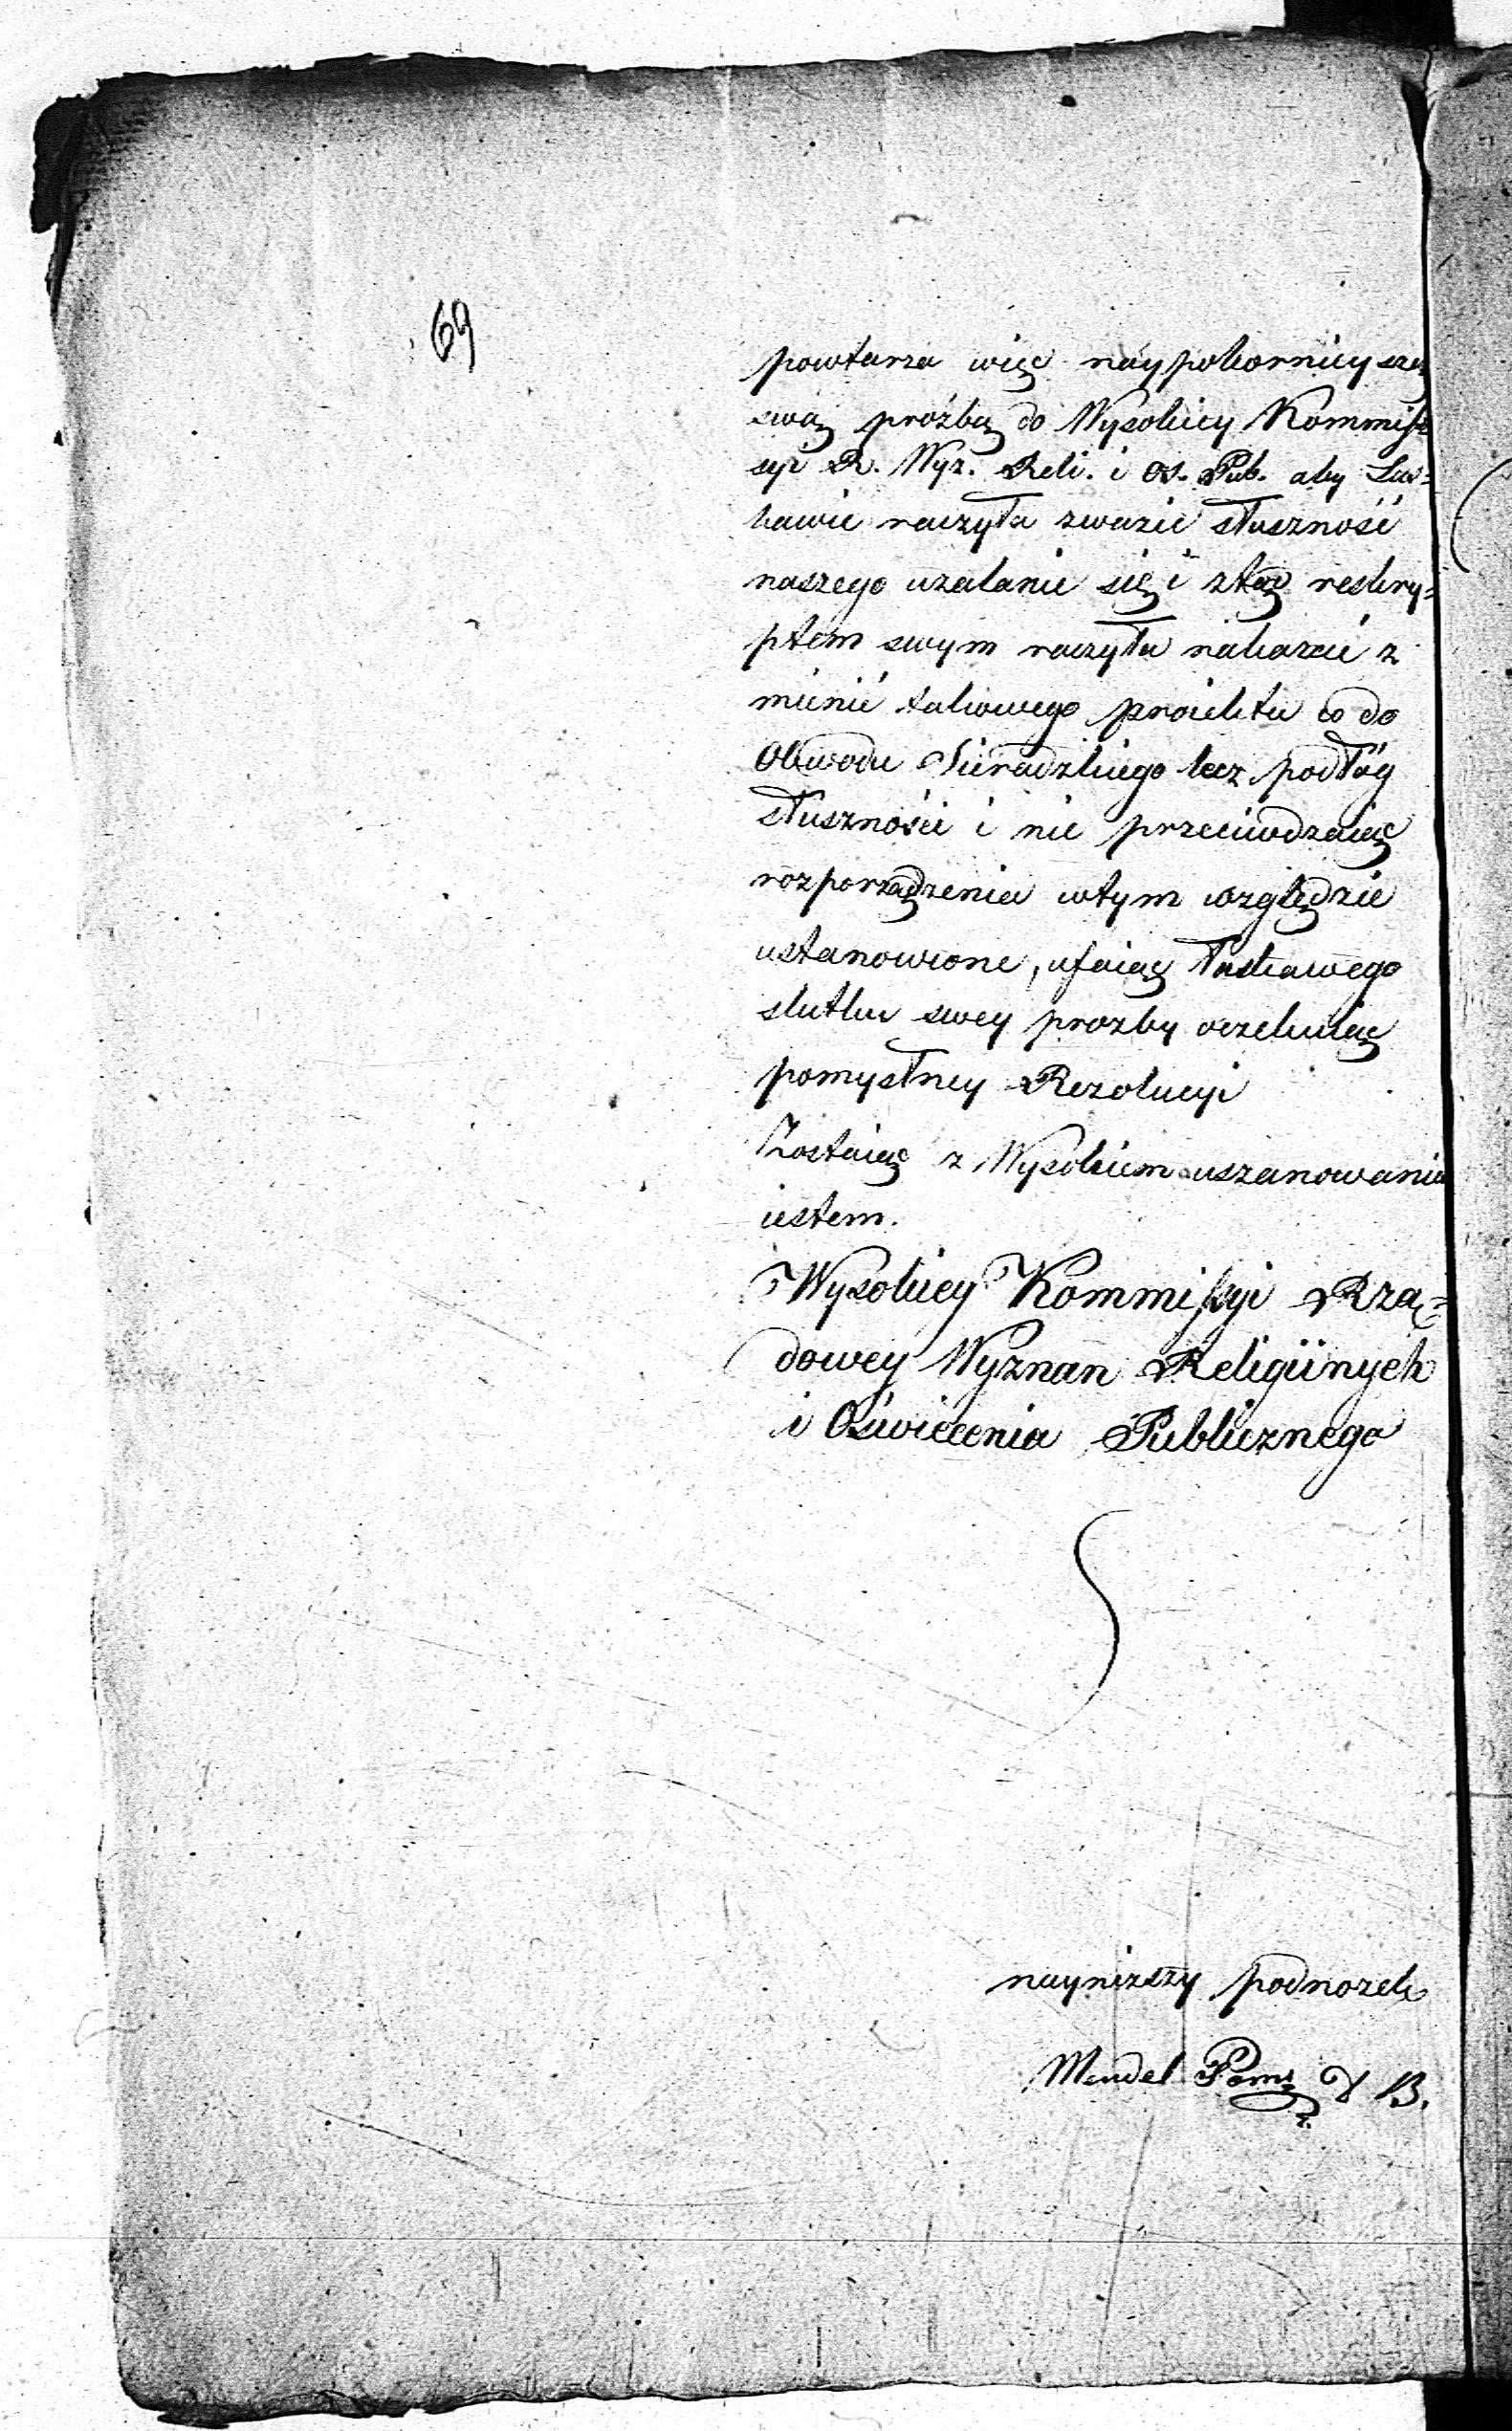 69
powtarza więc naypokornieyszą
swą proźbą do Wysokiey Kommis
syi R. Wyz. Reli. i Oś. Pub. aby Łas=
kawie raczyła zwazić słuszność
naszego uzalanie się i reskry=
ptem swym raczyła nakazać z
mienić takowego proiektu co do
Obwodu Sieradzkiego lecz podłóg
słuszności i nie przeciwdzaiąc
rozporządzenia wtym względzie
ustanowione, ufaiąc łaskawego
skutku swey prozby oczekuiąc
pomyślney Rezolucyi
Zostaiąc z Wysokiem uszanowaniu
iestem.
Wysokiey Kommissyi Rzą=
dowey Wyznan Religiinych
i Oświecenia Publicznego
naynizszy podnozek
Mendel B.